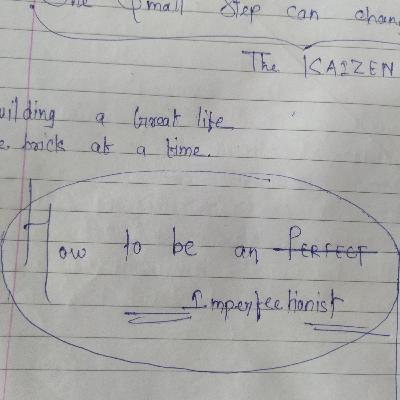 One Small Step can chang
The KAIZEN
uilding a Great life
e brick at a time.
How to be an PERFECT
Imperfectionist